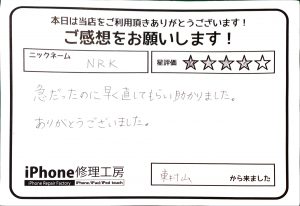 本日は当店をご利用頂きありがとうございます！
ご感想をお願いします！
ニックネーム
NRK
星評価
急だったのに早く直してもらい助かりました。
ありがとうございました。
iPhone修理工房
iPhone Repair Factory
iPhone/iPad/iPod touch
東村山 から来ました